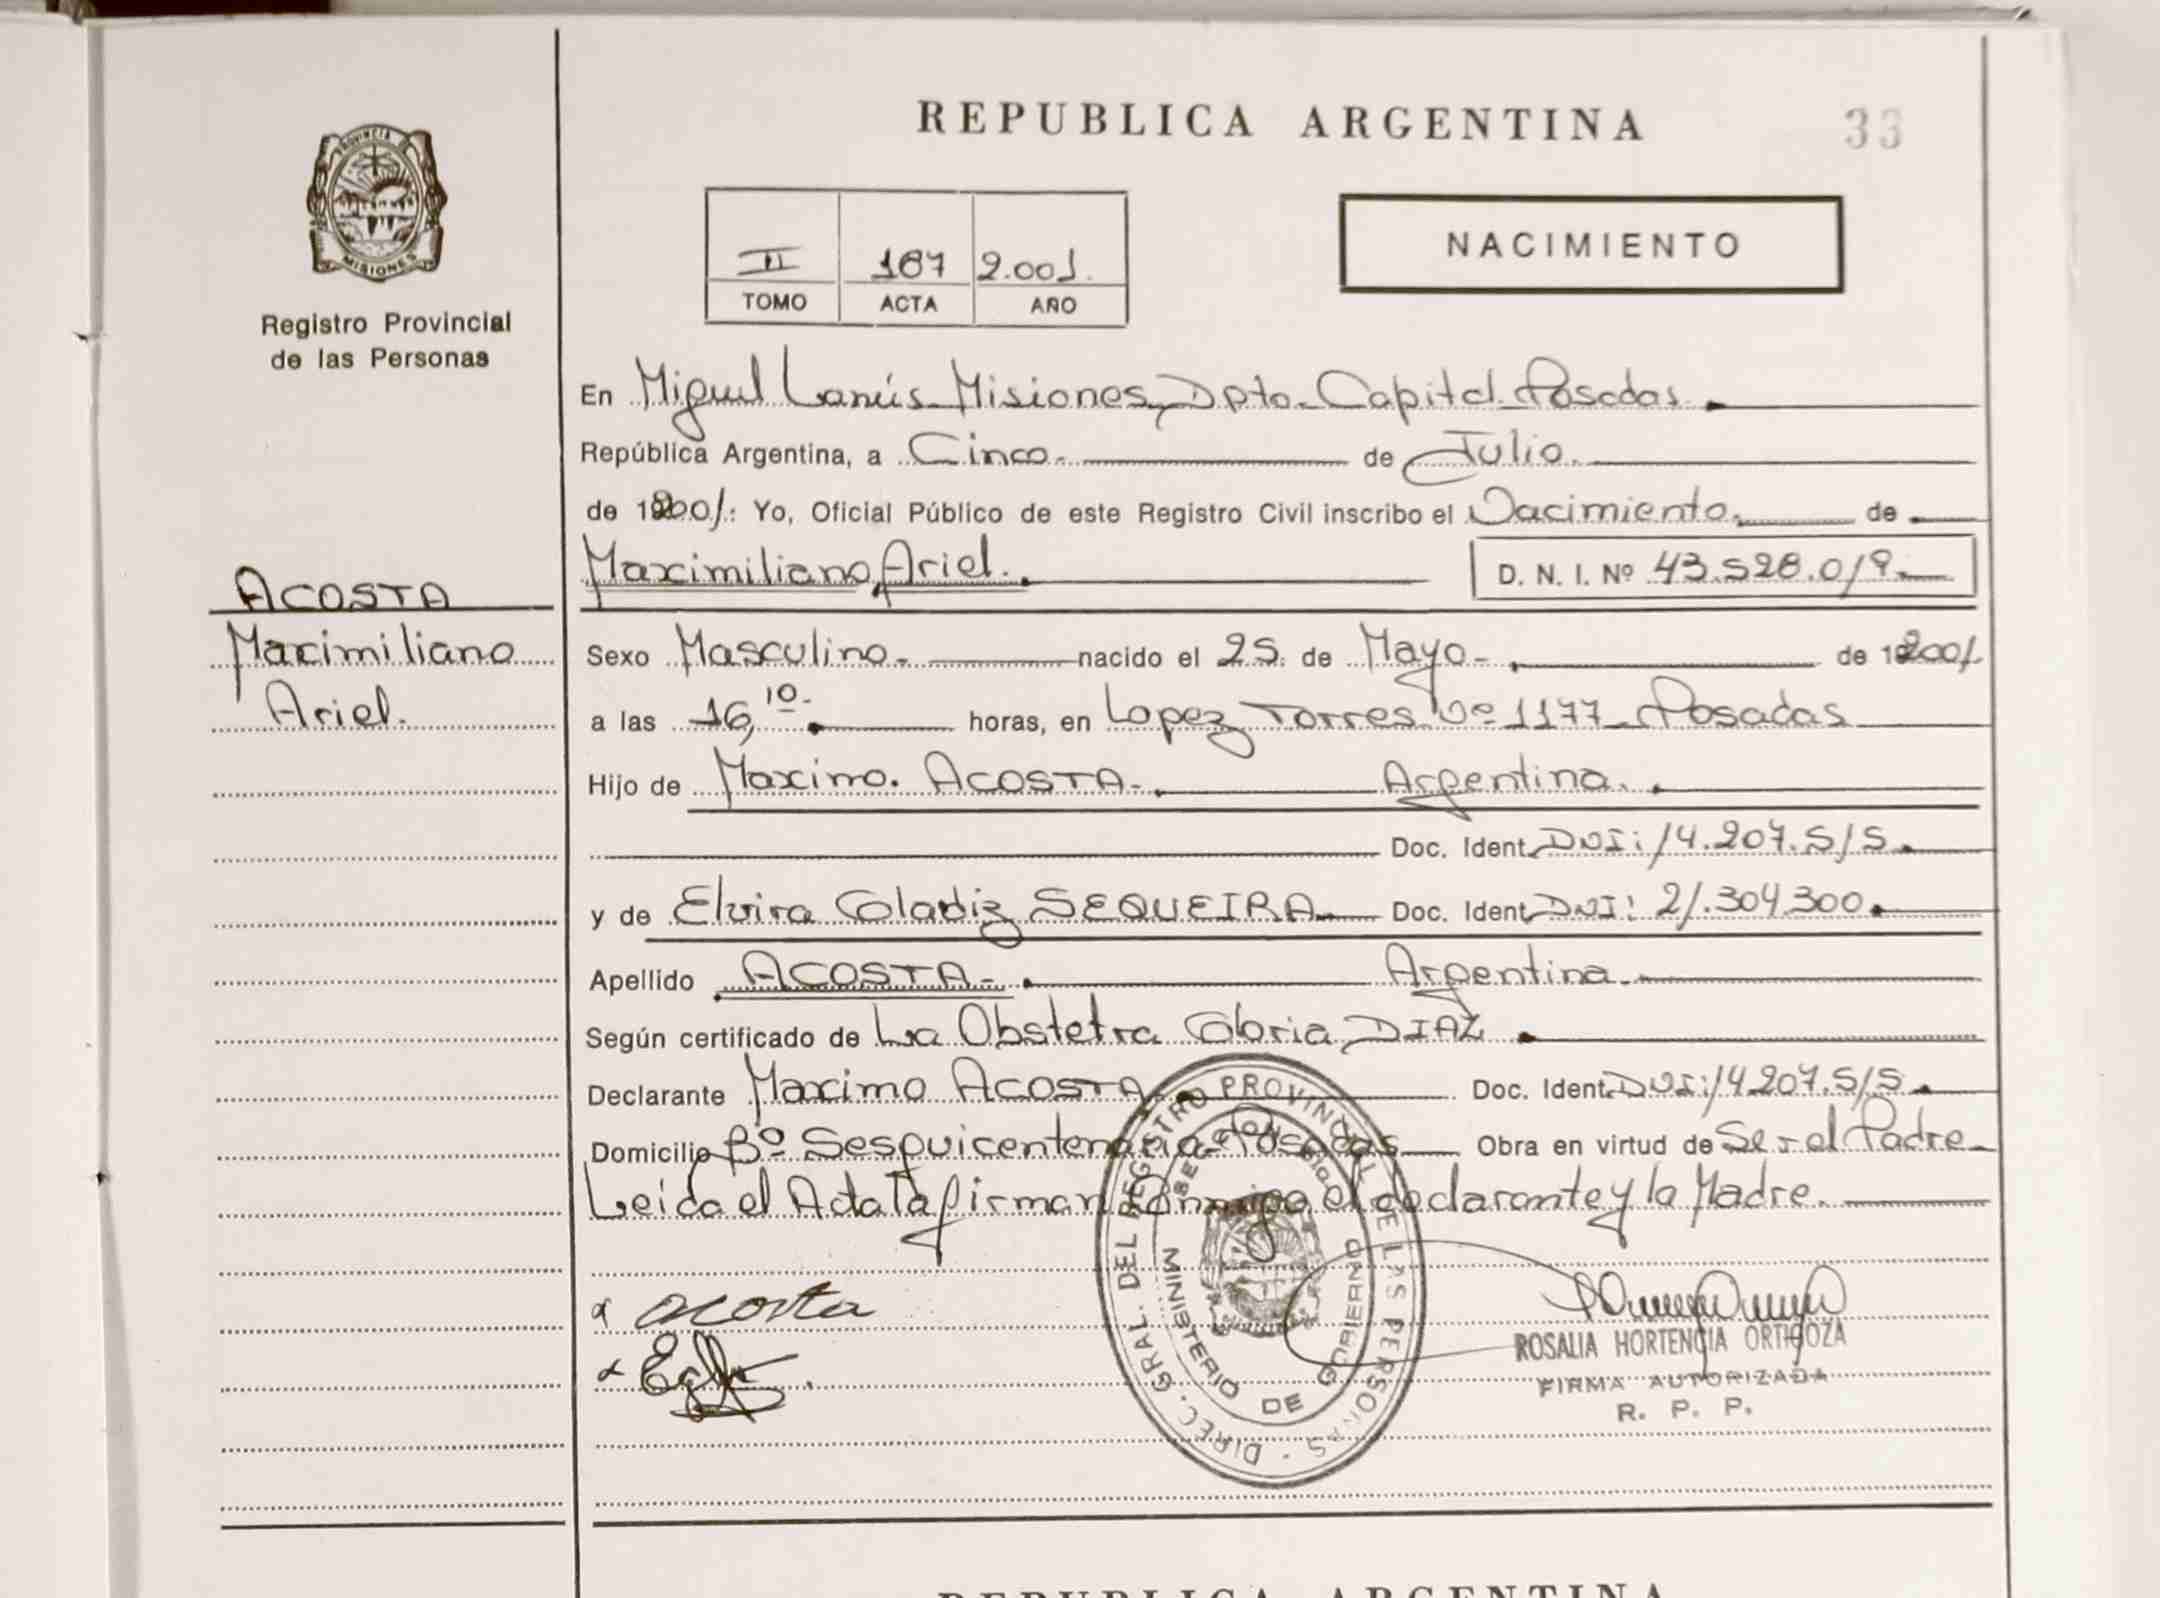 REPUBLICA ARGENTINA
33
PROVINCIA
MISIONES
Registro Provincial
de las Personas
II 187 2.001.
TOMO ACTA AÑO
NACIMIENTO
En Miguel Lanús Misiones, Dpto. Capital Posadas
República Argentina, a Cinco. de Julio.
de 2001: Yo, Oficial Público de este Registro Civil inscribo el Nacimiento. de
Maximiliano Ariel. D. N. I. Nº 43.528.019.
ACOSTA
Maximiliano
Ariel.
Sexo Masculino. nacido el 25. de Mayo de 2001
a las 16,10 horas, en Lopez Torres Nº 1177 Posadas
Hijo de Maximo. ACOSTA. Argentina.
Doc. Ident. DNI: 14.207.515.
y de Elvira Gladiz SEQUEIRA. Doc. Ident. DNI: 21.304.300.
Apellido ACOSTA. Argentina.
Según certificado de La Obstetra Gloria DIAZ
Declarante Maximo ACOSTA Doc. Ident. DNI: 14.207.515.
Domicilio Bº Sesquicentenario Posadas Obra en virtud de Ser el Padre
Leída el Acta la firman Conmigo el declarante y la Madre.
DIREC. GRAL. DEL REGISTRO PROVINCIAL DE LAS PERSONAS
MINISTERIO DE GOBIERNO
acosta
ROSALIA HORTENCIA ORTIGOZA
FIRMA AUTORIZADA
R. P. P.
REPUBLICA ARGENTINA